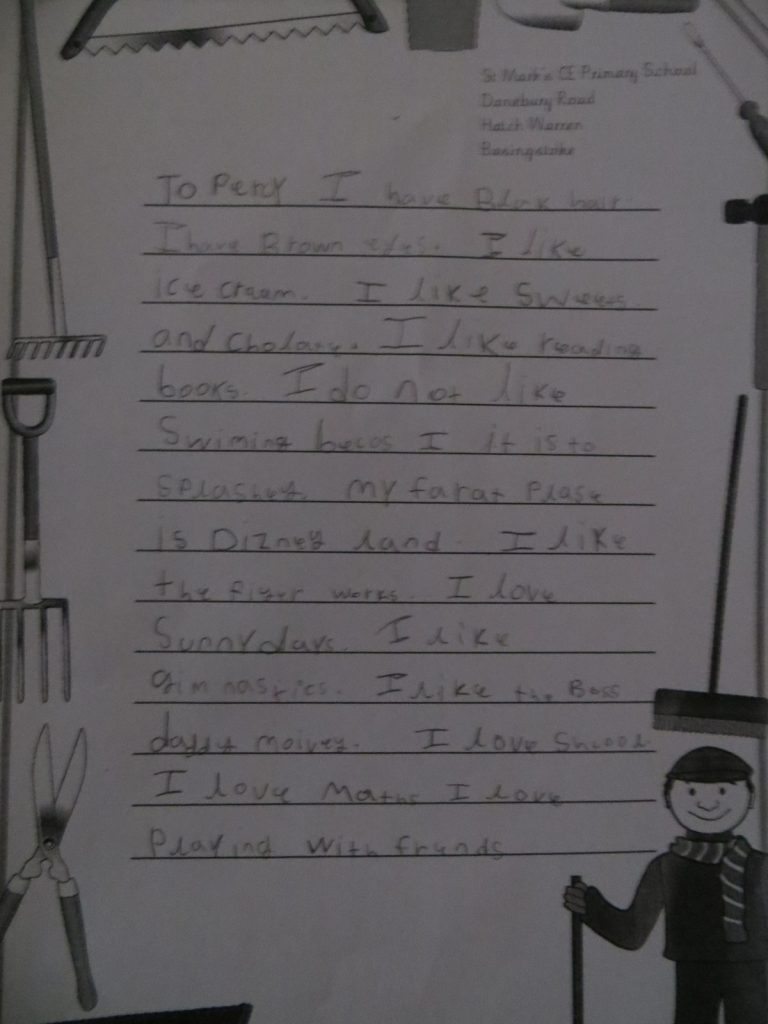 St Mark's CE Primary School
Danebury Road
Hatch Warren
Basingstoke
To Percy I have Blak hair
I have Brown eyes. I like
ice cream. I like Sweees
and Cholaty. I like reading
books. I do not like
Swiming becos I it is to
Splashey. my farat Plase
is Dizney land. I like
the fiyer works. I love
Sunny days. I like
gimnastics. I like the Boss
daddy moivey. I love Shcool
I love Maths I love
Playind with frunds